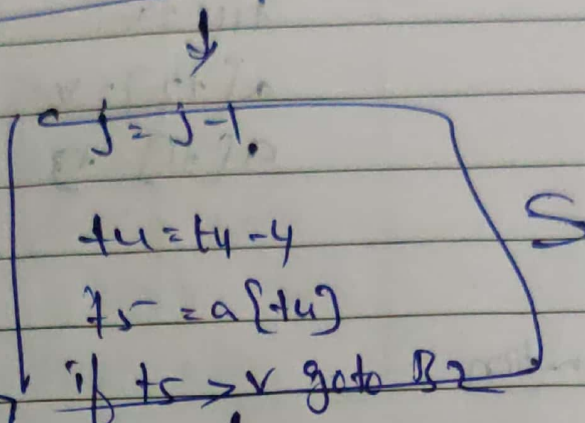 j = j-1.
t4 = t4 - 4
t5 = a[t4]
if t5 > v goto B2
S